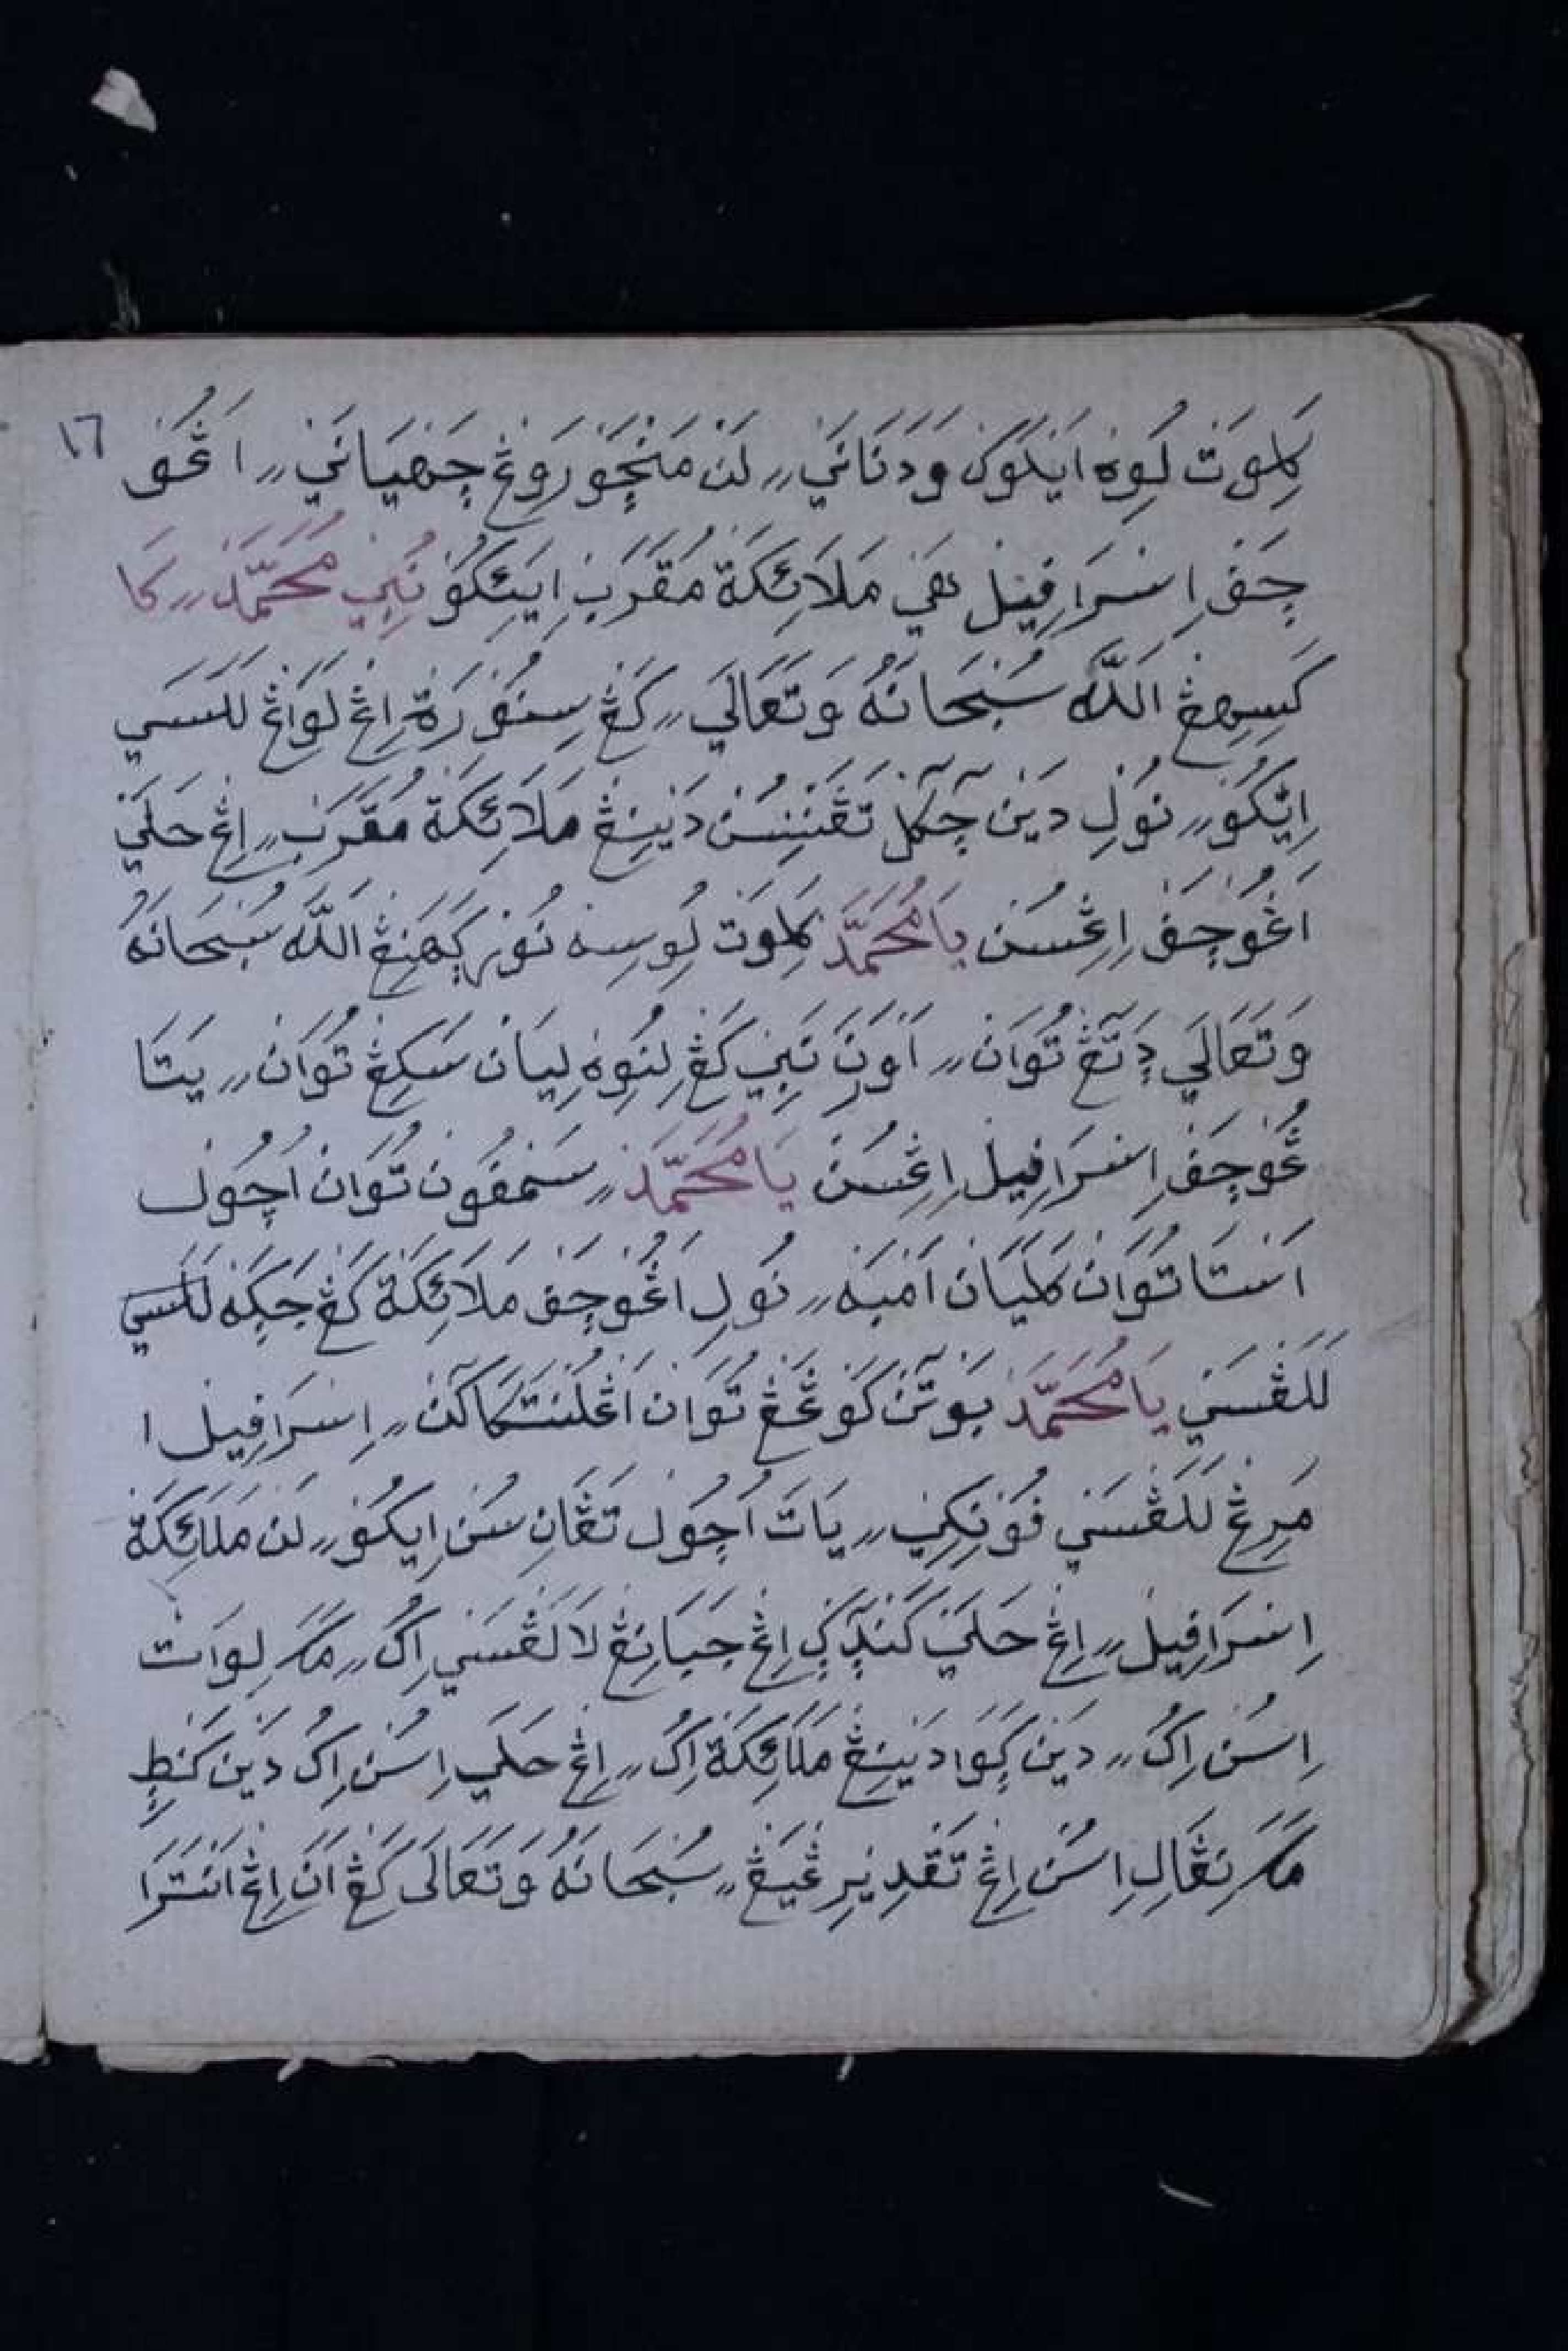 ١٦
كَلِوَتْ لُوِهْ اَيْلَوْكْ وَدَنَانَيْ ״ لَنْ مَنْچَوْرَوْڠْ چَهْيَانَيْ ״ اَڠُفْ
چَفْ اِسْرَافِيْلْ هَيْ مَلَائِكَةْ مُقَرَبْ اِيْتِكُوْ نَبِيْ مُحَمَّدْ ״ كَا
كَسِهِڠْ اللّٰه سُبْحَانَهُ وَتَعَالَي ״ كَڠْ سِنُفُوْرَةْ اِڠْ لَوَاڠْ لَلَسَيْ
اِيْكُوْ ״ نُوْلِ دَيْنْ چٓكٓلْ تَڠَنْنِسُنْ دَيْنِيْڠْ مَلَائِكَةْ مُقَرَبْ ״ اِڠْ حَلَيْ
اَڠُوْچَفْ اِڠْسُنْ يَامُحَمَّدْ كَلِوَتْ لُوِسِهْ نُوْݢْرَهَنِڠْ اللّٰه سُبْحَانَهُ
وَتَعَالَي دٓتٓڠْ تُوَانْ ״ اَوْنَ نَبِيْ كَڠْ لِنُوِهْ لِيَانْ سَكِڠْ تُوَانْ ״ يَتَا
ڠُوْچَفْ اِسْرَافِيْلْ اِڠْسُنْ يَامُحَمَّدْ ״ سَمْفُوْنْ تُوَانْ اُچُوْلْ
اَسْتَا تُوَانْ كَلِيَانْ اَمْبَهْ ״ نُوْلِ اَڠُوْچَفْ مَلَائِكَةْ كَڠْ جَݢَهْ لَلَسَيْ
لَلَڠْسَيْ يَامُحَمَّدْ بَوْتٓنْ كَوْڠَڠْ تُوَانْ اَڠْلَنْتَكَاكٓنْ ״ اِسْرَافِيْلْ ا
مَرِڠْ لَلَڠْسَيْ فُوْنِكِيْ ״ يَاتَ اُچُوْلْ تَڠَانِ سُنْ اِيْكُوْ ״ لَنْ مَلَائِكَةْ
اِسْرَافِيْلْ ״ اِڠْ حَلَيْ كَنْدٓݢْ اِڠْ جَبَانِڠْ لَالَڠْسَيْ اِكُ ״ مَكَ لِوَاتْ
اِسُنْ اِكُ ״ دَيْنْ ݢَوَا دَيْنِيْڠْ مَلَائِكَةْ اِكُ ״ اِڠْ حَلَي اِسُنْ اِكُ دَيْنْ كَنْطِ
مَكَ نِڠَالِ اِسُنْ اِڠْ تَقْدِيْرِ ڠْيَڠْ ״ سُبْحَانَهُ وَتَعَالَى كَڠْ اَنَ اِڠْ اَنْتَرَا